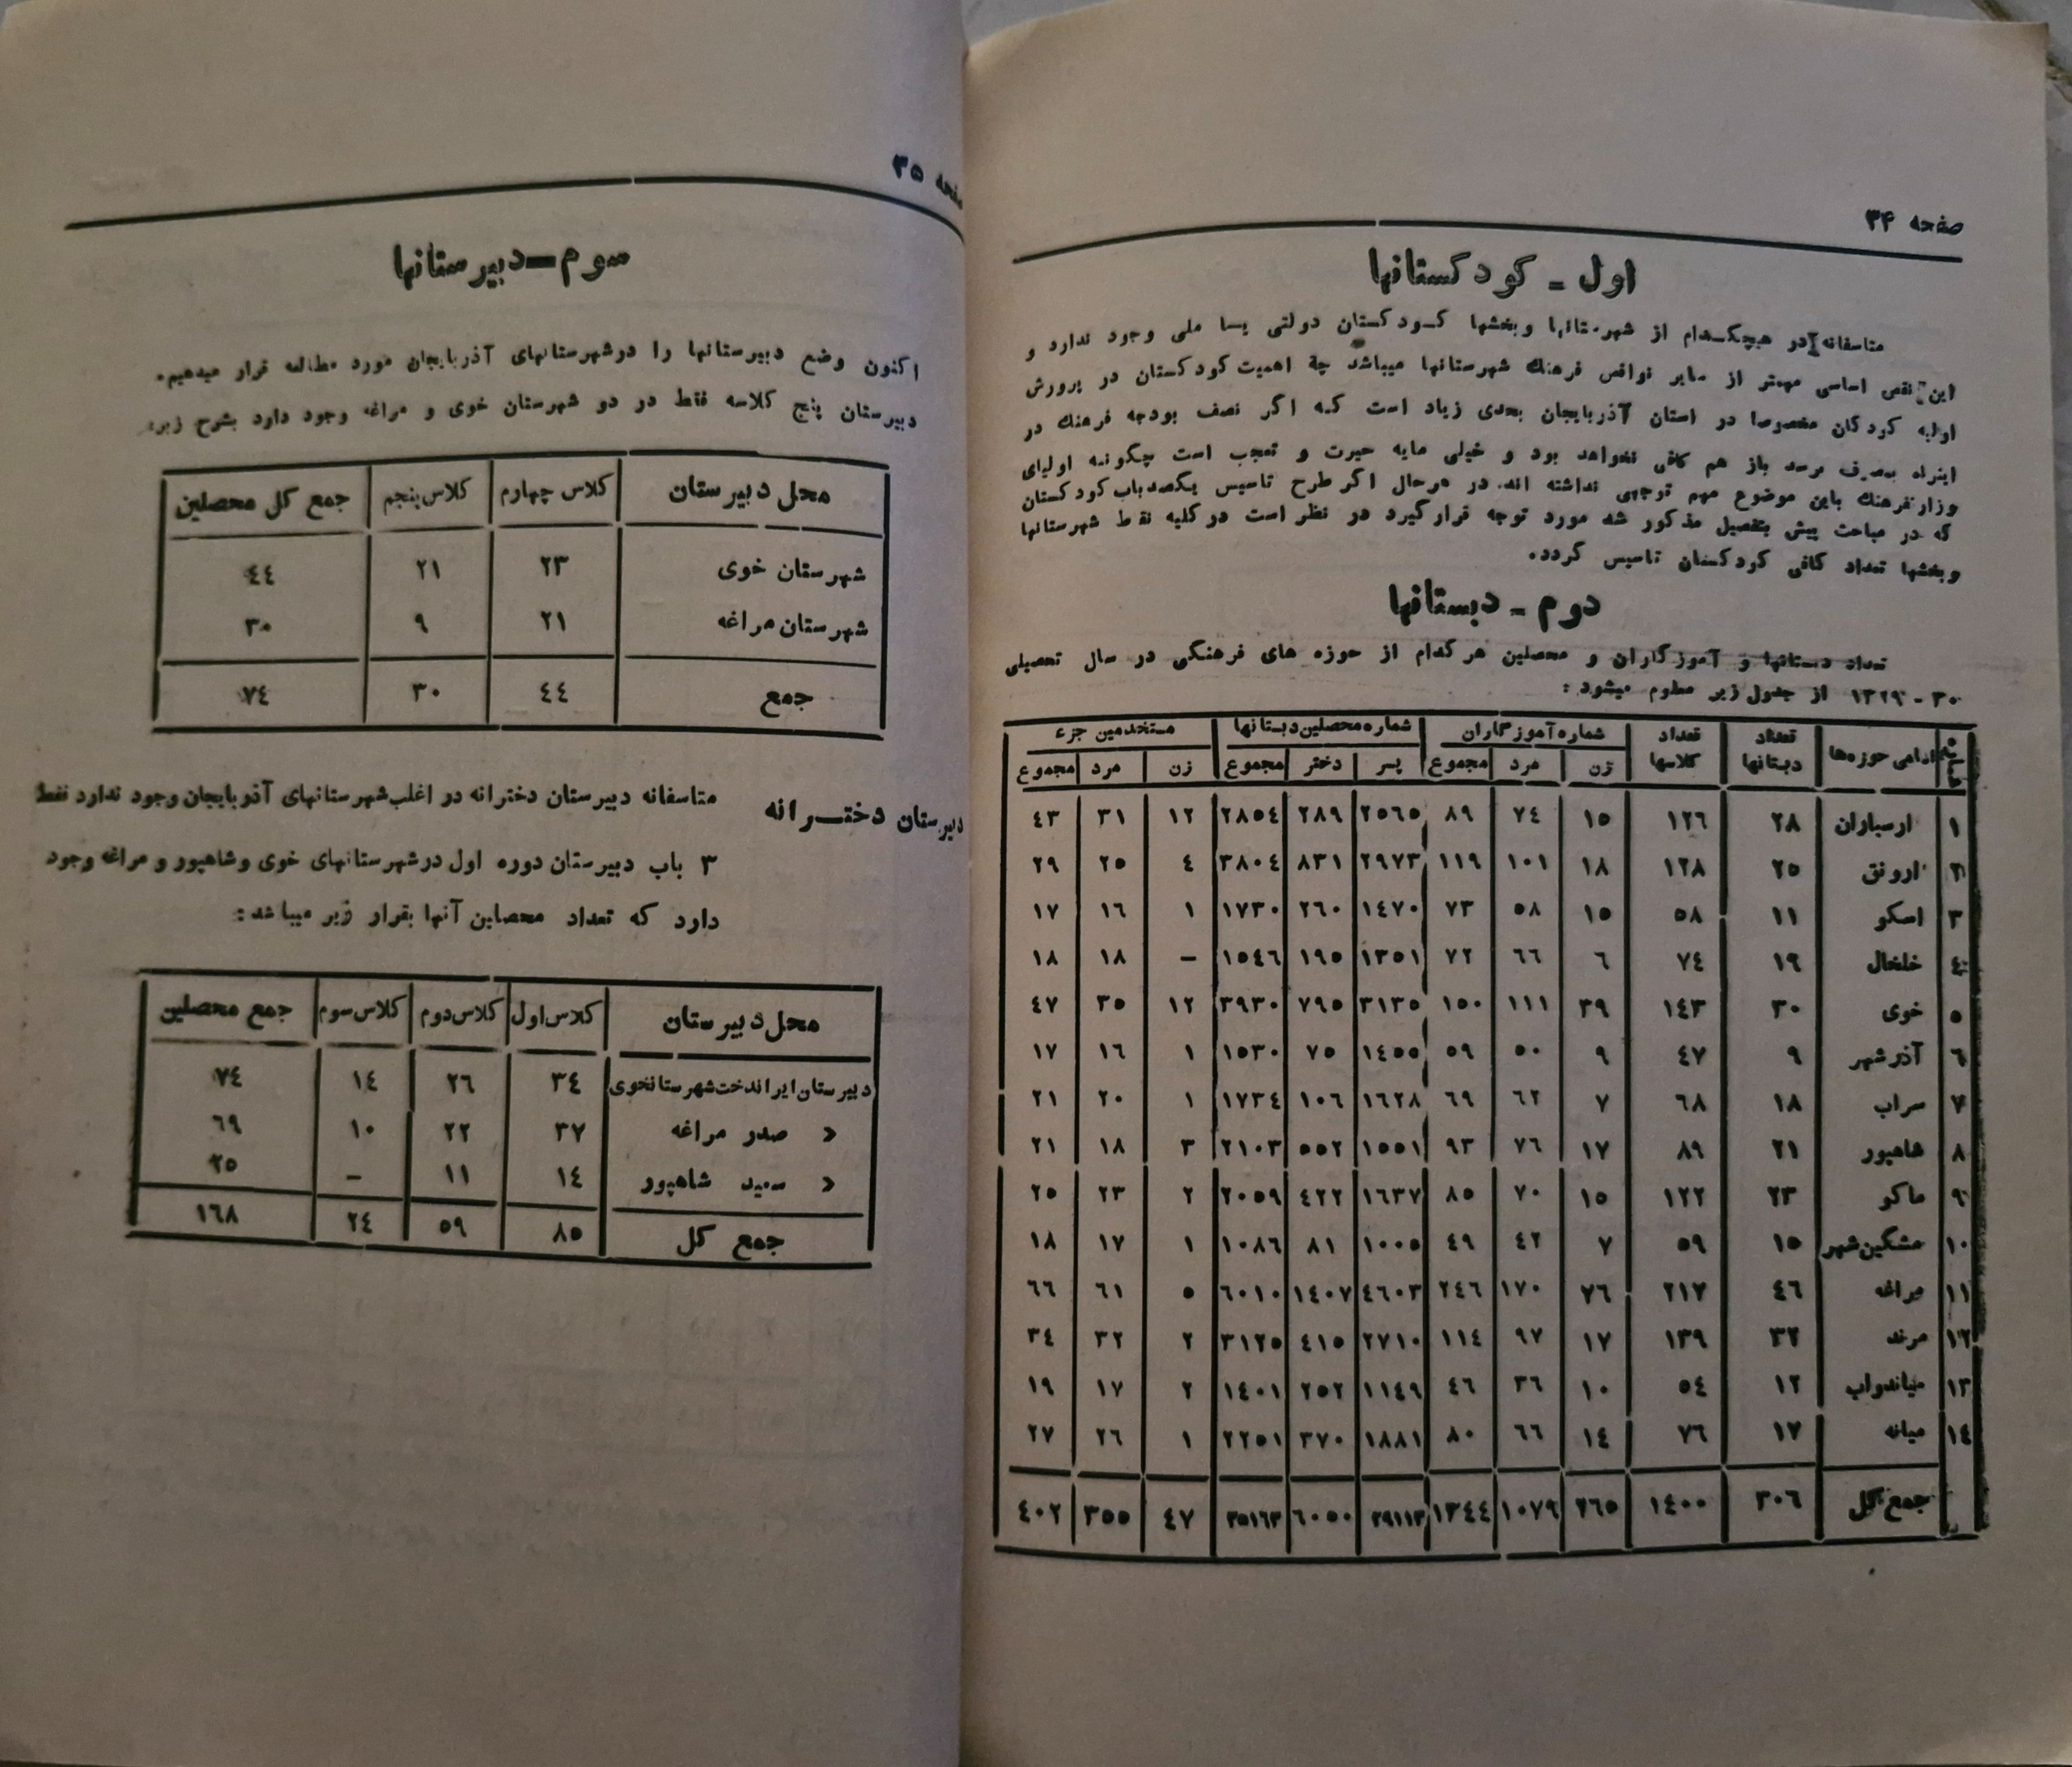 صفحه ۳۴
اول - کودکستانها
متاسفانه در هیچکدام از شهرستانها وبخشها کودکستان دولتی یسا ملی وجود ندارد و
این نقص اساسی مهمتر از سایر نواقص فرهنك شهرستانها میباشد چه اهمیت کودکستان در پرورش
اولیه کودکان مخصوصا در استان آذربایجان بحدی زیاد است که اگر نصف بودجه فرهنك در
اینراه بمصرف برسد باز هم کافی نخواهد بود و خیلی مایه حیرت و تعجب است چگونه اولیای
وزارتفرهنك باین موضوع مهم توجهی نداشته اند. در هرحال اگر طرح تاسیس یکصدباب کودکستان
که در مباحث پیش بتفصیل مذکور شد مورد توجه قرارگیرد در نظر است در کلیه نقاط شهرستانها
وبخشها تعداد کافی کودکستان تاسیس گردد.
دوم - دبستانها
تعداد دبستانها و آموزگاران و محصلین هرکدام از حوزه های فرهنگی در سال تحصیلی
۳۰ - ۱۳۲۹ از جدول زیر معلوم میشود :
شماره اسامی حوزه‌ها تعداد دبستانها تعداد کلاسها شماره آموزگاران شماره محصلین دبستانها مستخدمین جزء
زن مرد مجموع پسر دختر مجموع زن مرد مجموع
۱ ارسباران ۲۸ ۱۲٦ ۱٥ ۷٤ ۸۹ ۲٥٦٥ ۲۸۹ ۲۸٥٤ ۱۲ ۳۱ ٤۳
۲ ارونق ۲٥ ۱۲۸ ۱۸ ۱۰۱ ۱۱۹ ۲۹۷۳ ۸۳۱ ۳۸۰٤ ٤ ۲٥ ۲۹
۳ اسکو ۱۱ ٥۸ ۱٥ ٥۸ ۷۳ ۱٤۷۰ ۲٦۰ ۱۷۳۰ ۱ ۱٦ ۱۷
٤ خلخال ۱۹ ۷٤ ٦ ٦٦ ۷۲ ۱۳٥۱ ۱۹٥ ۱٥٤٦ – ۱۸ ۱۸
٥ خوی ۳۰ ۱٤۳ ۳۹ ۱۱۱ ۱٥۰ ۳۱۳٥ ۷۹٥ ۳۹۳۰ ۱۲ ۳٥ ٤۷
٦ آذرشهر ۹ ٤۷ ۹ ٥۰ ٥۹ ۱٤٥٥ ۷٥ ۱٥۳۰ ۱ ۱٦ ۱۷
۷ سراب ۱۸ ٦۸ ۷ ٦۲ ٦۹ ۱٦۲۸ ۱۰٦ ۱۷۳٤ ۱ ۲۰ ۲۱
۸ شاهپور ۲۱ ۸۹ ۱۷ ۷٦ ۹۳ ۱٥٥۱ ٥٥۲ ۲۱۰۳ ۳ ۱۸ ۲۱
۹ ماکو ۲۳ ۱۲۲ ۱٥ ۷۰ ۸٥ ۱٦۳۷ ٤۲۲ ۲۰٥۹ ۲ ۲۳ ۲٥
۱۰ مشگین‌شهر ۱٥ ٥۹ ۷ ٤۲ ٤۹ ۱۰۰٥ ۸۱ ۱۰۸٦ ۱ ۱۷ ۱۸
۱۱ مراغه ٤٦ ۲۱۷ ۷٦ ۱۷۰ ۲٤٦ ٤٦۰۳ ۱٤۰۷ ٦۰۱۰ ٥ ٦۱ ٦٦
۱۲ مرند ۳۲ ۱۳۹ ۱۷ ۹۷ ۱۱٤ ۲۷۱۰ ٤۱٥ ۳۱۲٥ ۲ ۳۲ ۳٤
۱۳ میاندواب ۱۲ ٥٤ ۱۰ ۳٦ ٤٦ ۱۱٤۹ ۲٥۲ ۱٤۰۱ ۲ ۱۷ ۱۹
۱٤ میانه ۱۷ ۷٦ ۱٤ ٦٦ ۸۰ ۱۸۸۱ ۳۷۰ ۲۲٥۱ ۱ ۲٦ ۲۷
جمع کل ۳۰٦ ۱٤۰۰ ۲٦٥ ۱۰۷۹ ۱۳٤٤ ۲۹۱۱۳ ٦۰٥۰ ۳٥۱٦۳ ٤۷ ۳٥٥ ٤۰۲
صفحه ۳۵
سوم – دبیرستانها
اکنون وضع دبیرستانها را درشهرستانهای آذربایجان مورد مطالعه قرار میدهیم.
دبیرستان پنج کلاسه فقط در دو شهرستان خوی و مراغه وجود دارد بشرح زیر:
محل دبیرستان کلاس چهارم کلاس پنجم جمع کل محصلین
شهرستان خوی ۲۳ ۲۱ ٤٤
شهرستان مراغه ۲۱ ۹ ۳۰
جمع ٤٤ ۳۰ ۷٤
دبیرستان دخترانه متاسفانه دبیرستان دخترانه در اغلب شهرستانهای آذربایجان وجود ندارد فقط
۳ باب دبیرستان دوره اول درشهرستانهای خوی وشاهپور و مراغه وجود
دارد که تعداد محصلین آنها بقرار زیر میباشد :
محل دبیرستان کلاس اول کلاس دوم کلاس سوم جمع محصلین
دبیرستان ایراندخت شهرستانخوی ۳٤ ۲٦ ۱٤ ۷٤
« صدر مراغه ۳۷ ۲۲ ۱۰ ٦۹
« سعید شاهپور ۱٤ ۱۱ – ۲٥
جمع کل ۸٥ ٥۹ ۲٤ ۱٦۸